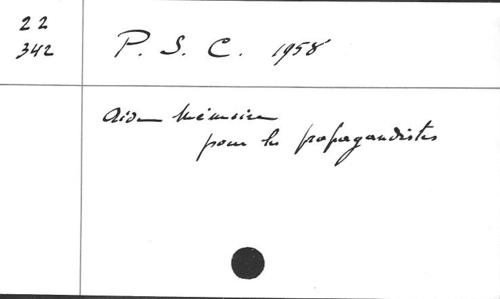 22
342
P. S. C. 1958
Aide Mémoire
pour les propagandistes